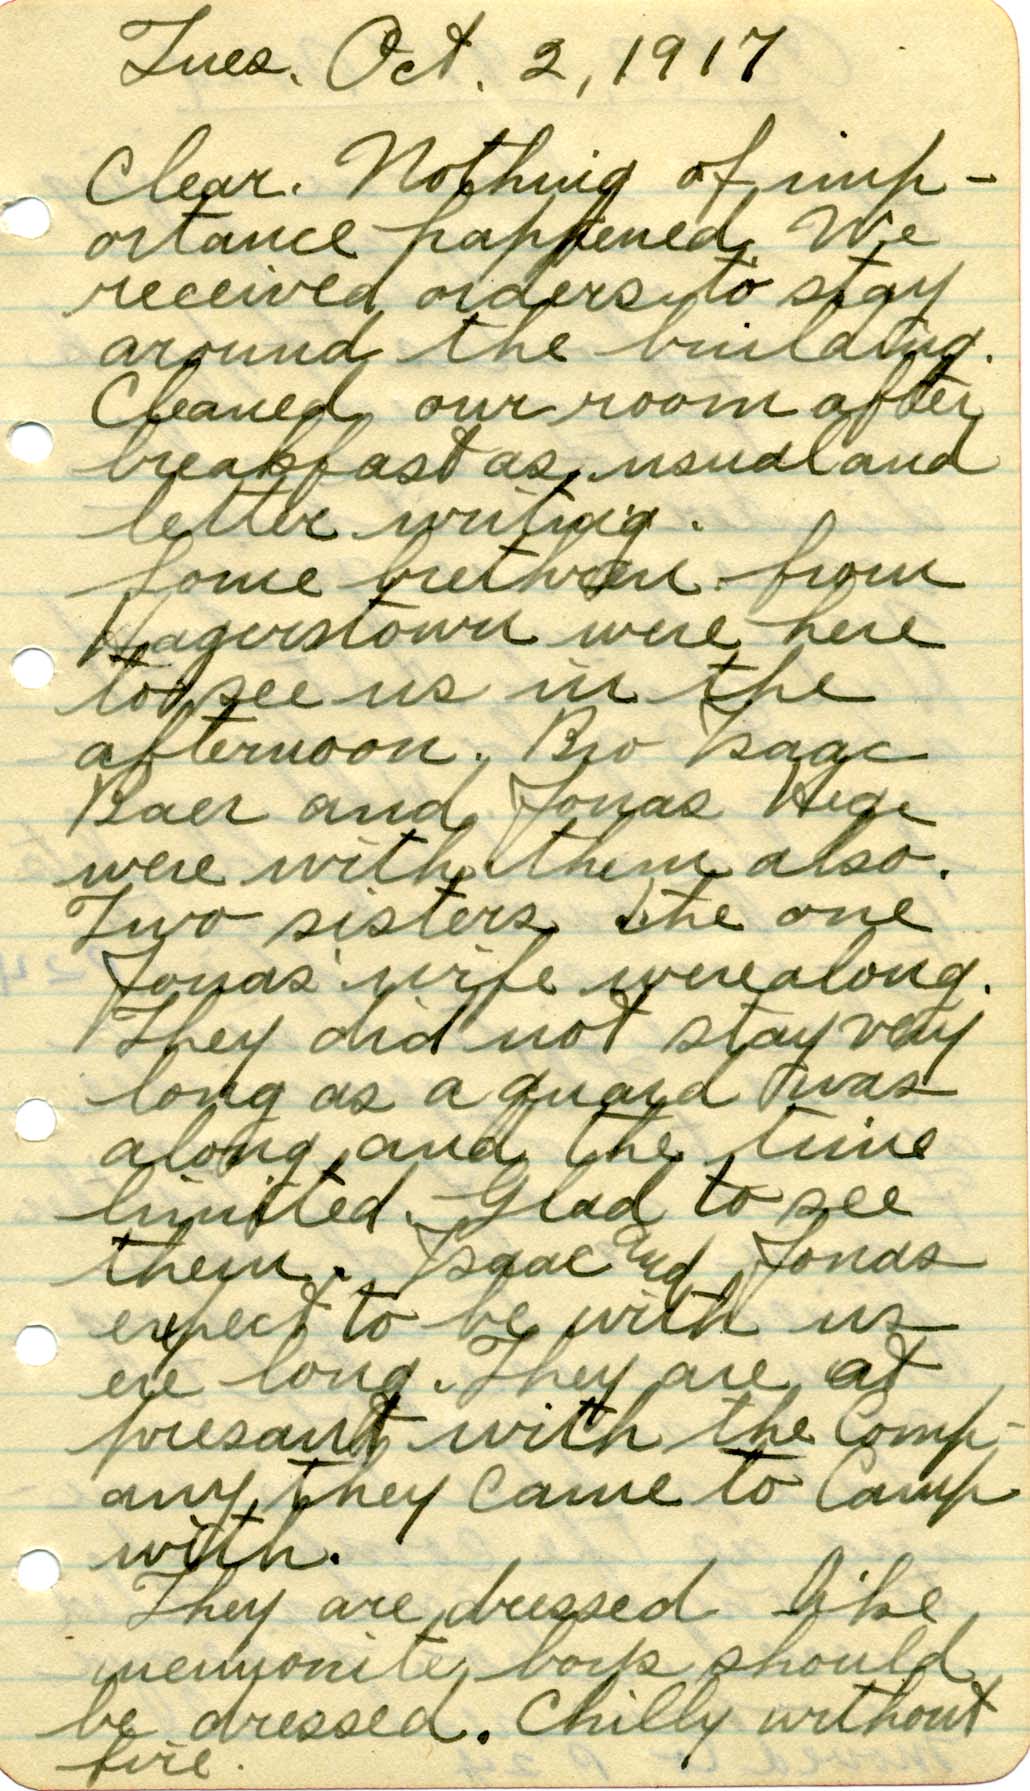 Tues. Oct. 2, 1917
Clear. Nothing of imp-
ortance happened. We
received orders to stay
around the building.
Cleaned our room after
breakfast as usual and
letter writing.
Some brethren from
Hagerstown were here
to see us in the
afternoon. Bro Isaac
Baer and Jonas Hege
were with them also.
Two sisters the one
Jonas' wife were along.
They did not stay very
long as a guard was
along and the time
limited. Glad to see
them. Isaac and Jonas
expect to be with us
ere long. They are at
presant with the Comp-
any they came to Camp
with.
They are dressed like
mennonite boys should
be dressed. Chilly without
fire.